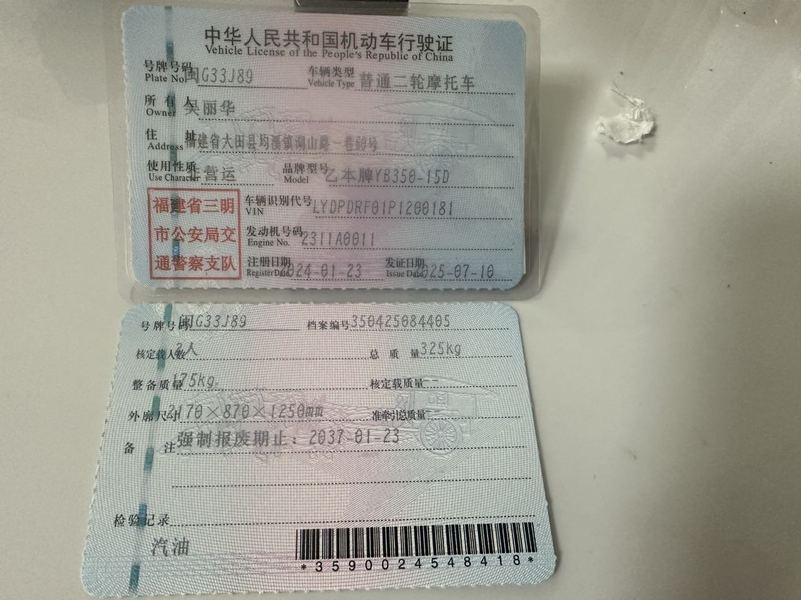 中华人民共和国机动车行驶证
Vehicle License of the People's Republic of China
号牌号码 闽G33J89 车辆类型 普通二轮摩托车
Plate No. Vehicle Type
所有人 吴丽华
Owner
住址 福建省大田县均溪镇湖山路一巷60号
Address
使用性质 非营运 品牌型号 乙本牌YB350-15D
Use Character Model
福建省三明
市公安局交
通警察支队
车辆识别代号 LYDPDRF01P1200181
VIN
发动机号码 2311A0011
Engine No.
注册日期 2024-01-23 发证日期 2025-07-10
Register Date Issue Date
号牌号码 闽G33J89 档案编号 350425084405
核定载人数 2人 总质量 325kg
整备质量 175kg 核定载质量 --
外廓尺寸 2170×870×1250mm 准牵引总质量 --
备注 强制报废期止：2037-01-23
检验记录
汽油
*3590024548418*